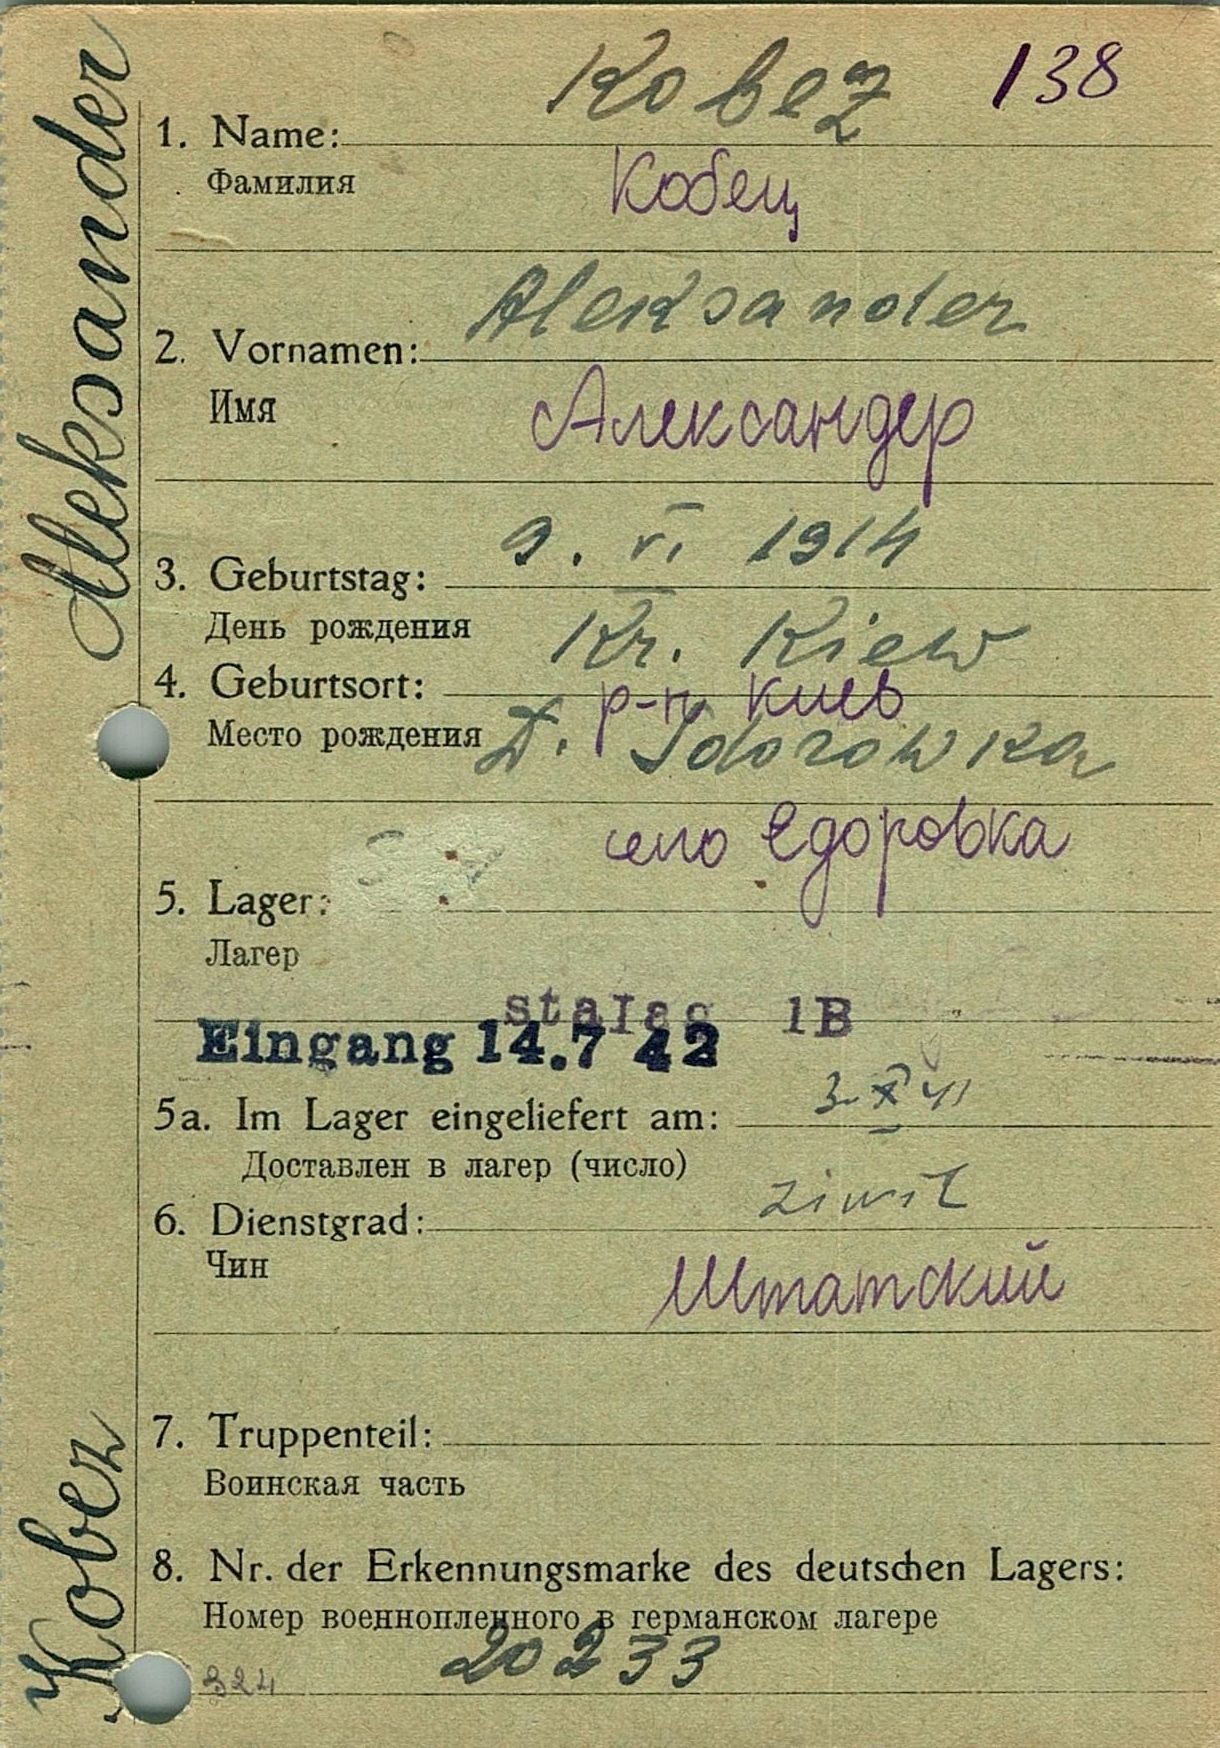 Kobez 138
1. Name:
Фамилия
Кобец
Aleksander
2. Vornamen:
Имя
Александер
9. VI. 1914
3. Geburtstag:
День рождения
Kr. Kiew
4. Geburtsort:
р-н Киев
Место рождения D. Jdorowka
село Едоровка
5. Lager:
Лагер
Stalag 1B
Eingang 14.7 42
5a. Im Lager eingeliefert am: 3. X 41
Доставлен в лагер (число)
ziwil
6. Dienstgrad:
Чин
Штатский
7. Truppenteil:
Воинская часть
8. Nr. der Erkennungsmarke des deutschen Lagers:
Номер военнопленного в германском лагере
20233
324
Kobez Aleksander